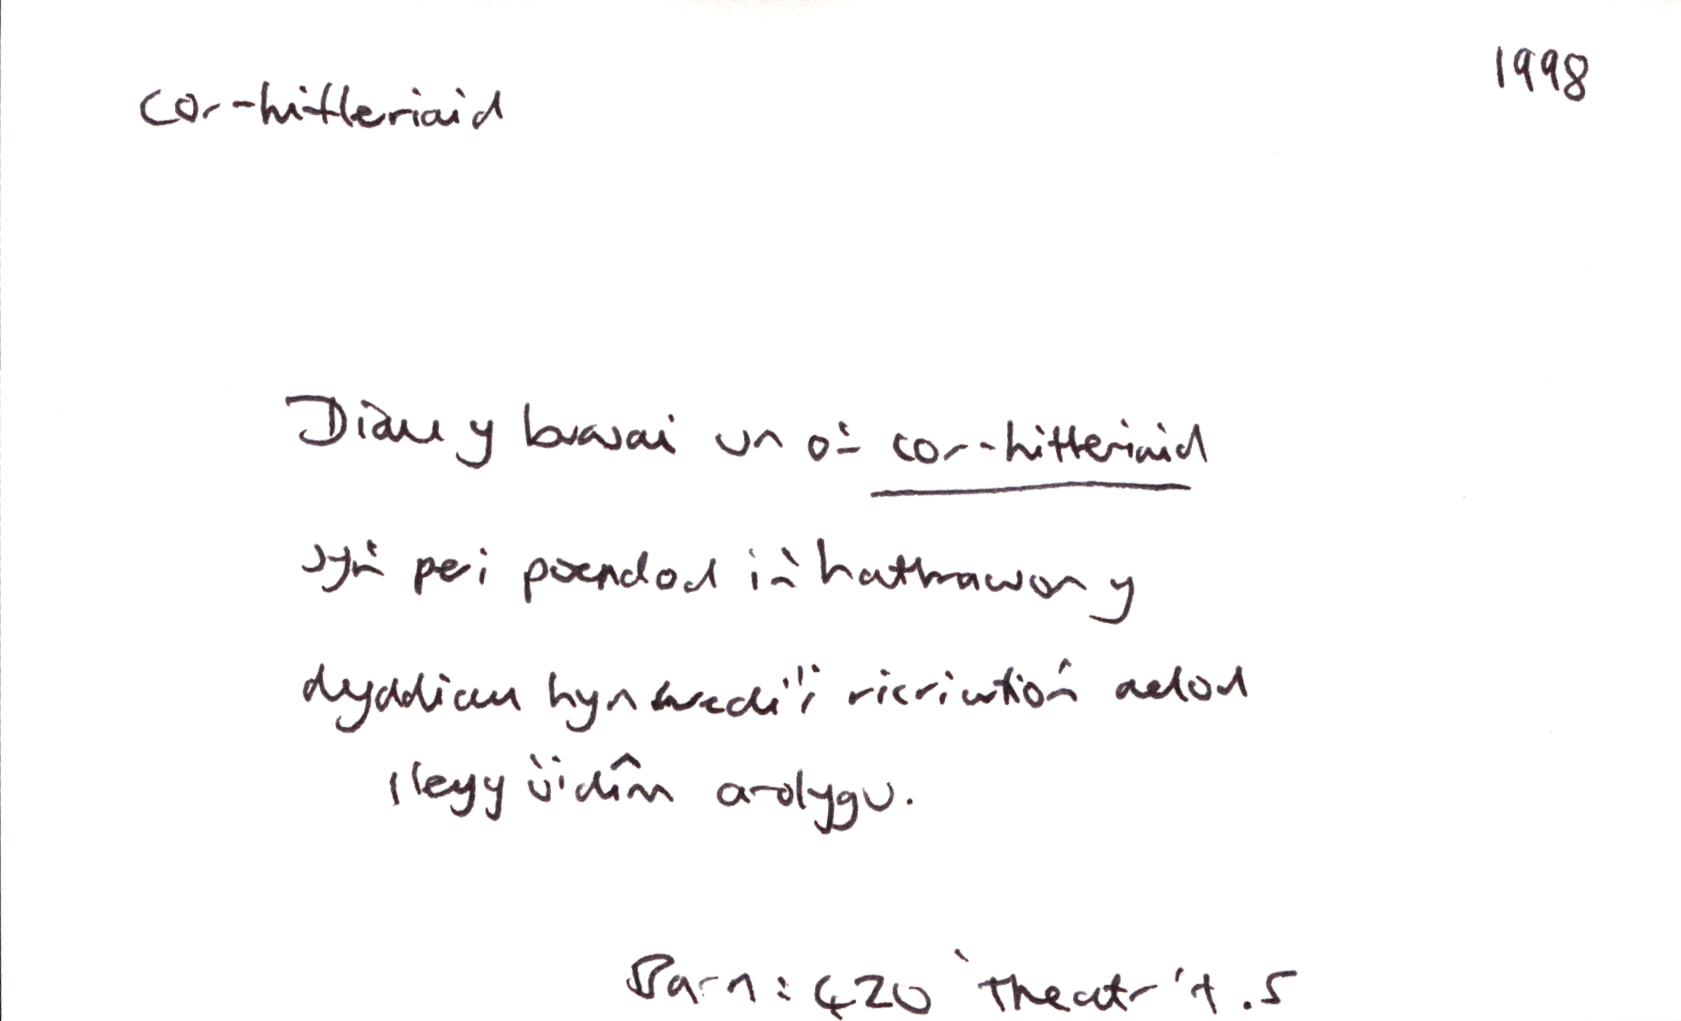 1998
cor-hitleriaid
Diau y buasai un o'r cor-hitleriaid
sy'n peri poendod i'n hathrawon y
dyddiau hyn wedi'i ricriwtio'n aelod
lleyg i'i dîm arolygu.
Barn: 420 'Theatr' t.5